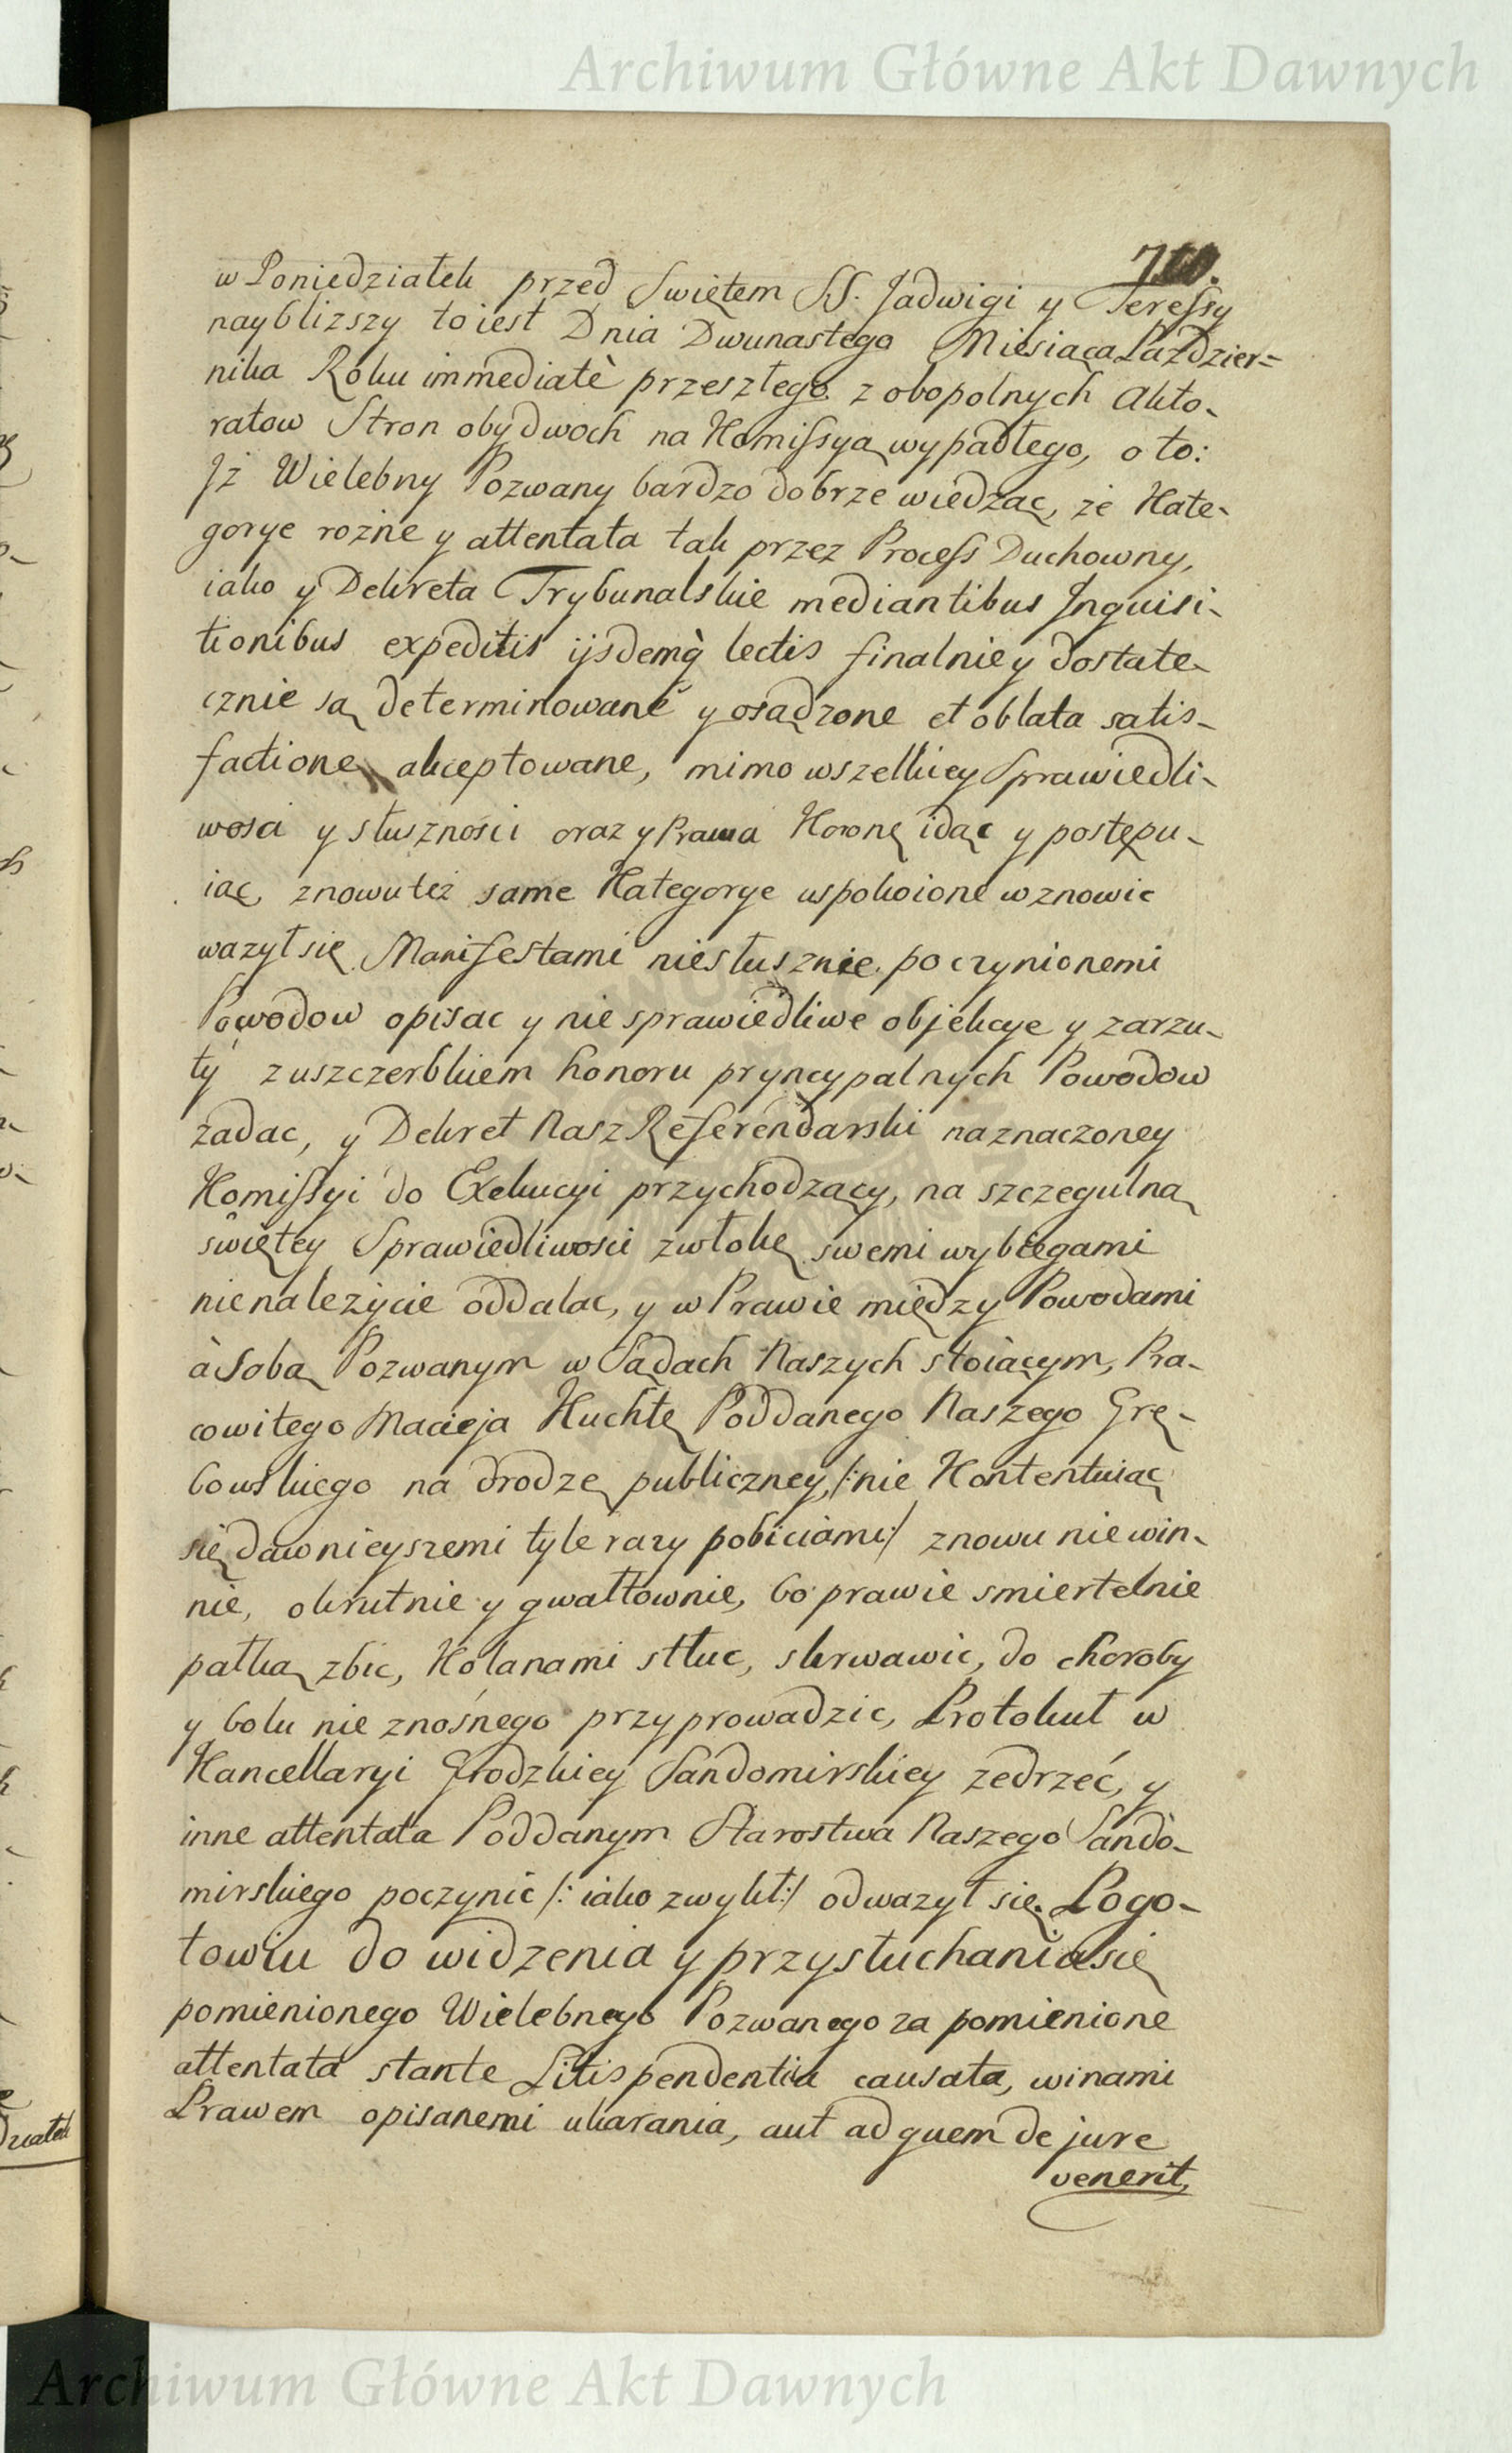 Archiwum Główne Akt Dawnych
w Poniedziałek przed Swiętem SS. Jadwigi y Teressy
nayblizszy to iest Dnia Dwunastego Miesiąca Paździer=
nika Roku immediatè przeszłego z obopolnych Akto-
ratow Stron obydwoch na Komissyą wypadłego, o to:
Iż Wielebny Pozwany bardzo dobrze wiedząc, że Kate-
gorye rożne y attentata tak przez Process Duchowny,
iako y Dekreta Trybunalskie mediantibus Inquisi-
tionibus expeditis ijsdemq̀ lectis finalnie y dostate-
cznie są determinowane y osądzone et oblata satis-
factione akceptowane, mimo wszelkiey Sprawiedli-
wosci y słuszności oraz y Prawa Koronę idąc y postępu-
iąc, znowu też same Kategorye uspokoione wznowic
wazył się Manifestami niesłusznie poczynionemi
Powodow opisac y niesprawiedliwe objekcye y zarzu-
ty z uszczerbkiem honoru pryncypalnych Powodow
zadac, y Dekret Nasz Referendarski naznaczoney
Komissyi do Exekucyi przychodzący, na szczegulną
świętey Sprawiedliwosci zwłokę swemi wybiegami
nienależycie oddalac, y w Prawie między Powodami
à Sobą Pozwanym w Sądach Naszych stoiącym, Pra-
cowitego Macieja Kuchtę Poddanego Naszego Grę-
bowskiego na drodze publiczney, /:nie Kontentuiąc
się dawnieyszemi tyle razy pobiciami:/ znowu niewin-
nie, okrutnie y gwałtownie, bo prawie smiertelnie
pałką zbic, Kolanami stłuc, skrwawic, do choroby
y bolu nie znośnego przyprowadzic, Protokuł w
Kancellaryi Grodzkiey Sandomirskiey zedrzeć, y
inne attentata Poddanym Starostwa Naszego Sando-
mirskiego poczynic /: iako zwykł:/ odwazył się. Pogo-
towiu do widzenia y przysłuchania się
pomienionego Wielebnego Pozwanego za pomienione
attentata stante Litispendentia causata, winami
Prawem opisanemi ukarania, aut ad quem de jure
venerit,
Archiwum Główne Akt Dawnych